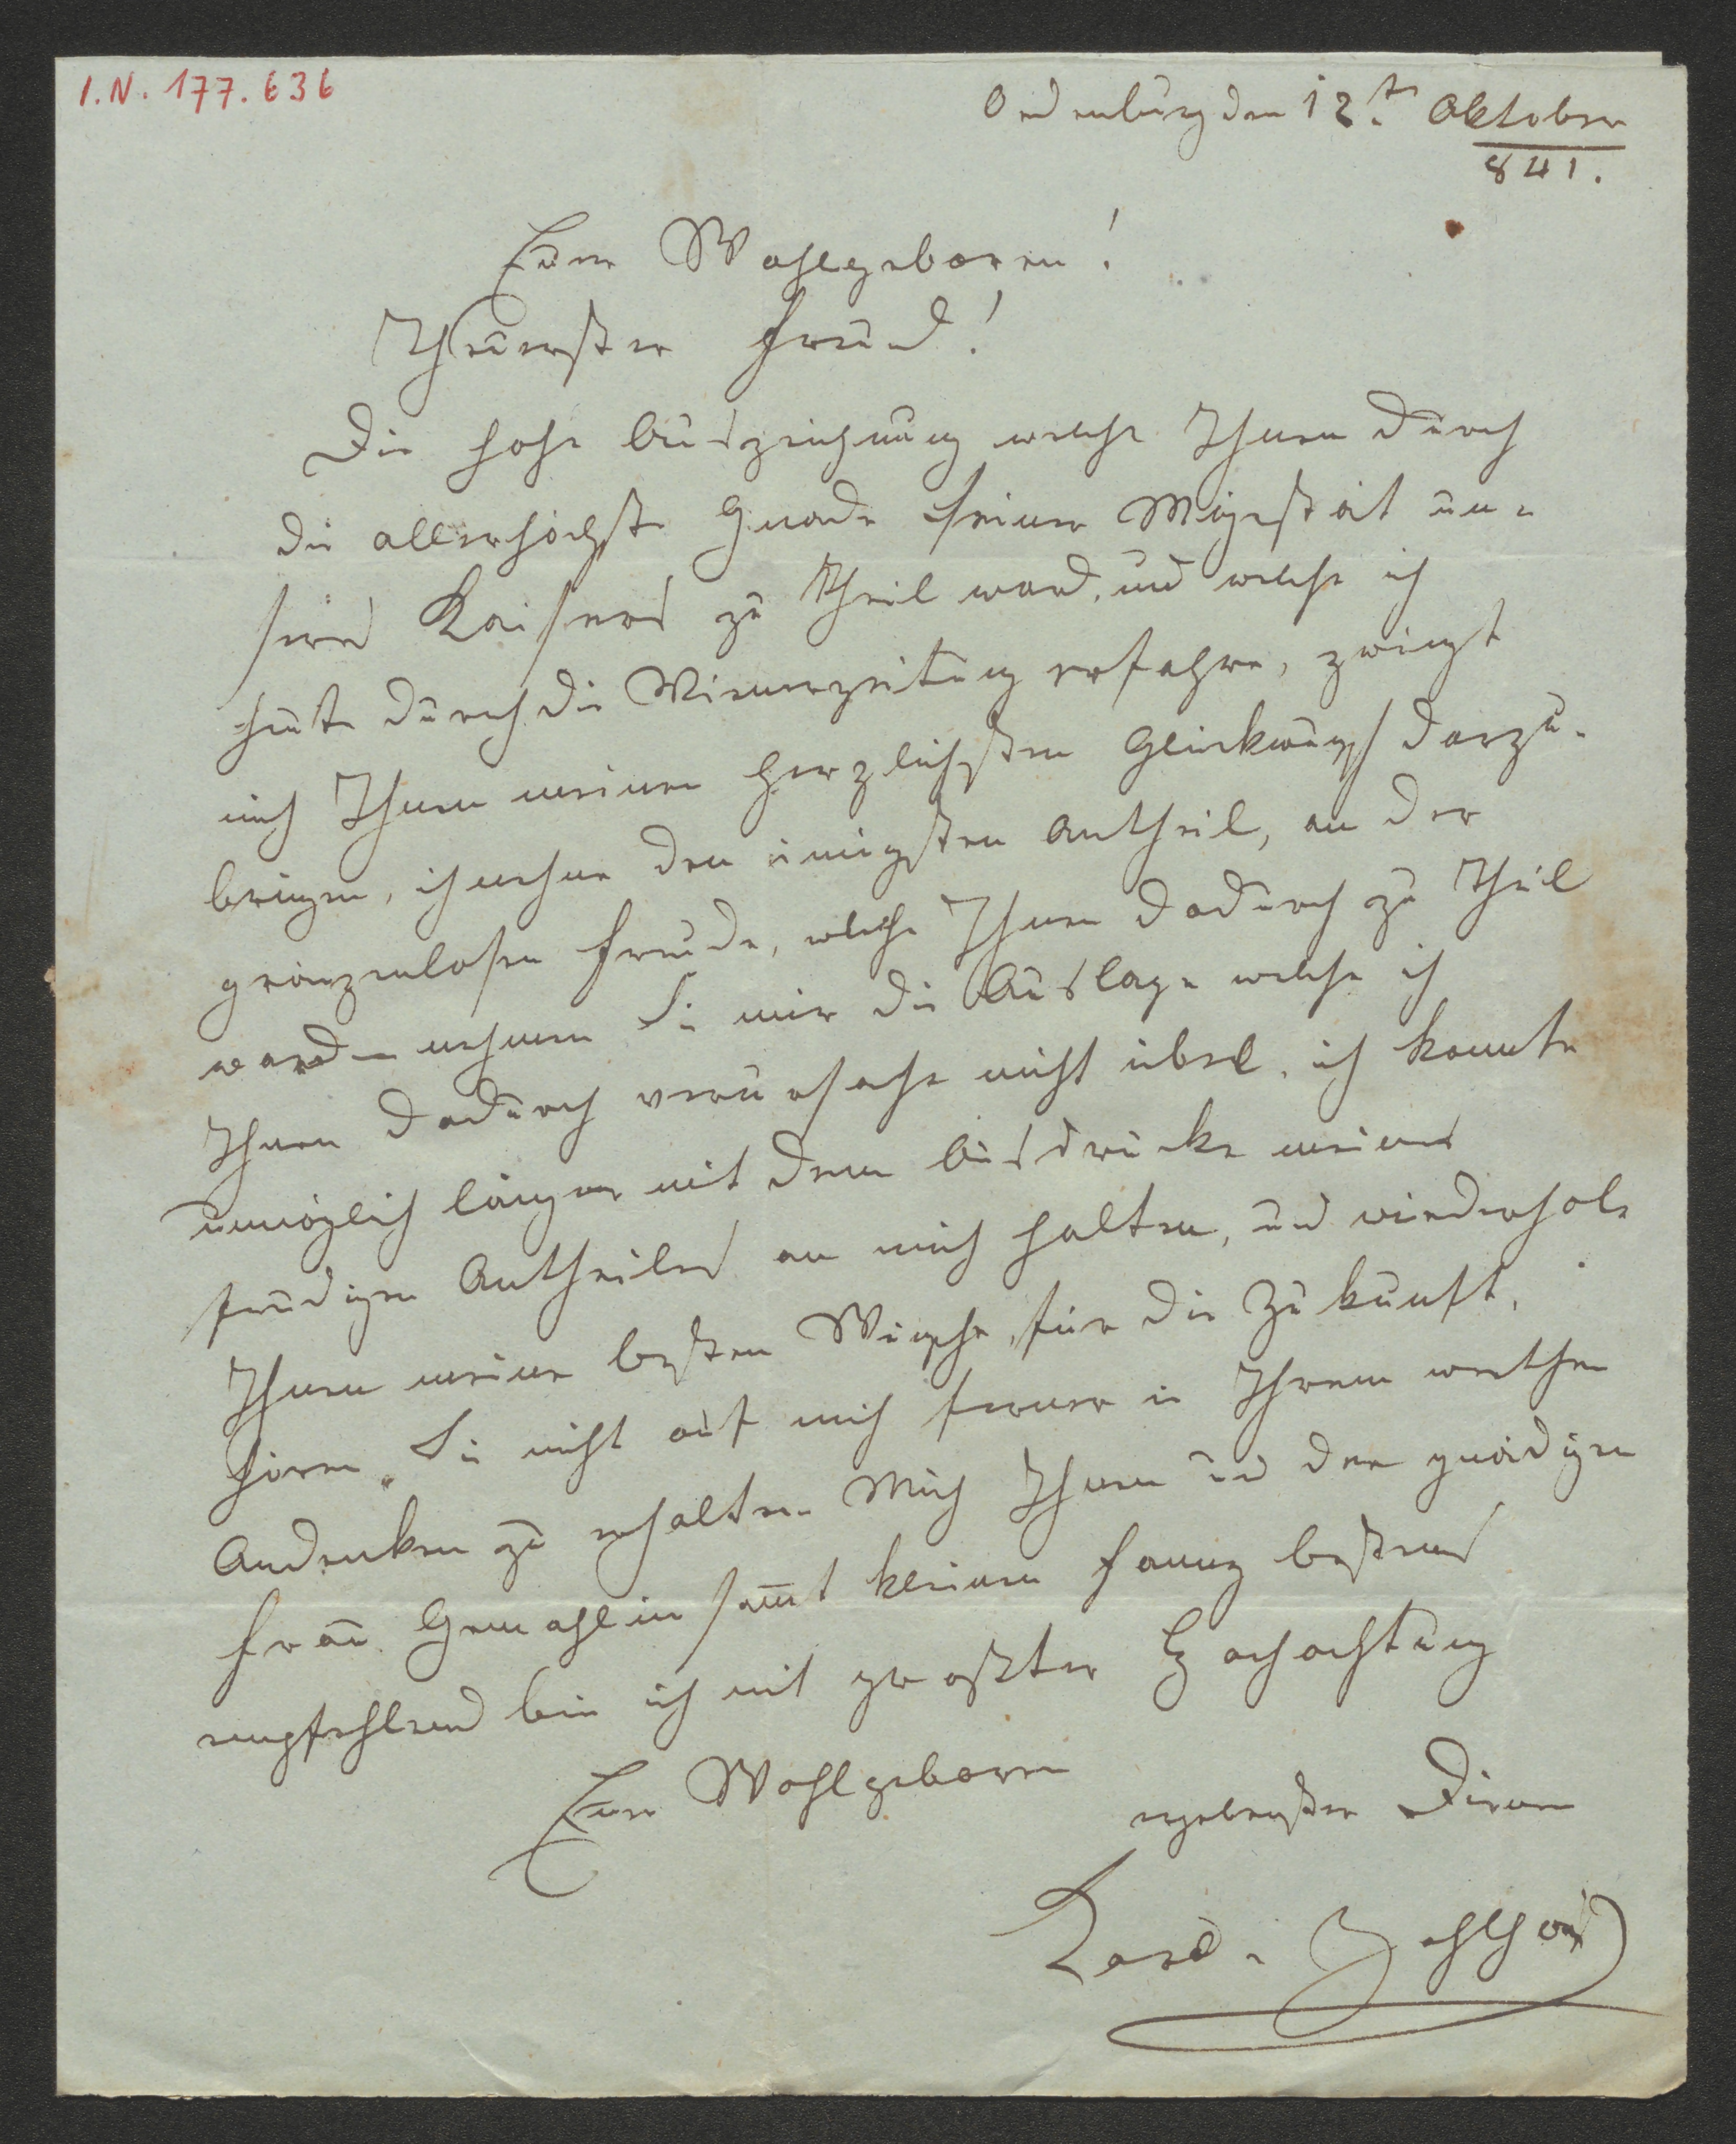 I.N. 177.636
Oedenburg den 12t. Oktober
841.
Euer Wohlgeboren!
Theuerster Freund!
Die hohe Auszeichnung welche Ihnen durch
die allerhöchste Gnade Seiner Majestät un-
seres Kaisers zu Theil ward, und welche ich
heute durch die Wienerzeitung erfahre, zwingt
mich Ihnen meinen herzlichsten Glückwunsch darzu-
bringen, ich nehme den innigsten Antheil, an der
gränzenlosen Freude, welche Ihnen dadurch zu Theil
ward – nehmen Sie mir die Auslage welche ich
Ihnen dadurch verursache nicht übel, ich konnte
unmöglich länger mit dem Ausdrucke meines
freudigen Antheiles an mich halten, und wiederhole
Ihnen meine besten Wünsche für die Zukunft.
Hören Sie nicht auf mich ferner in Ihrem werthen
Andenken zu erhalten. Mich Ihnen und der gnädigen
Frau Gemahlin samt kleinen Fanny bestens
empfehlend bin ich mit größter Hochachtung
Euer Wohlgeboren
ergebenster Diener